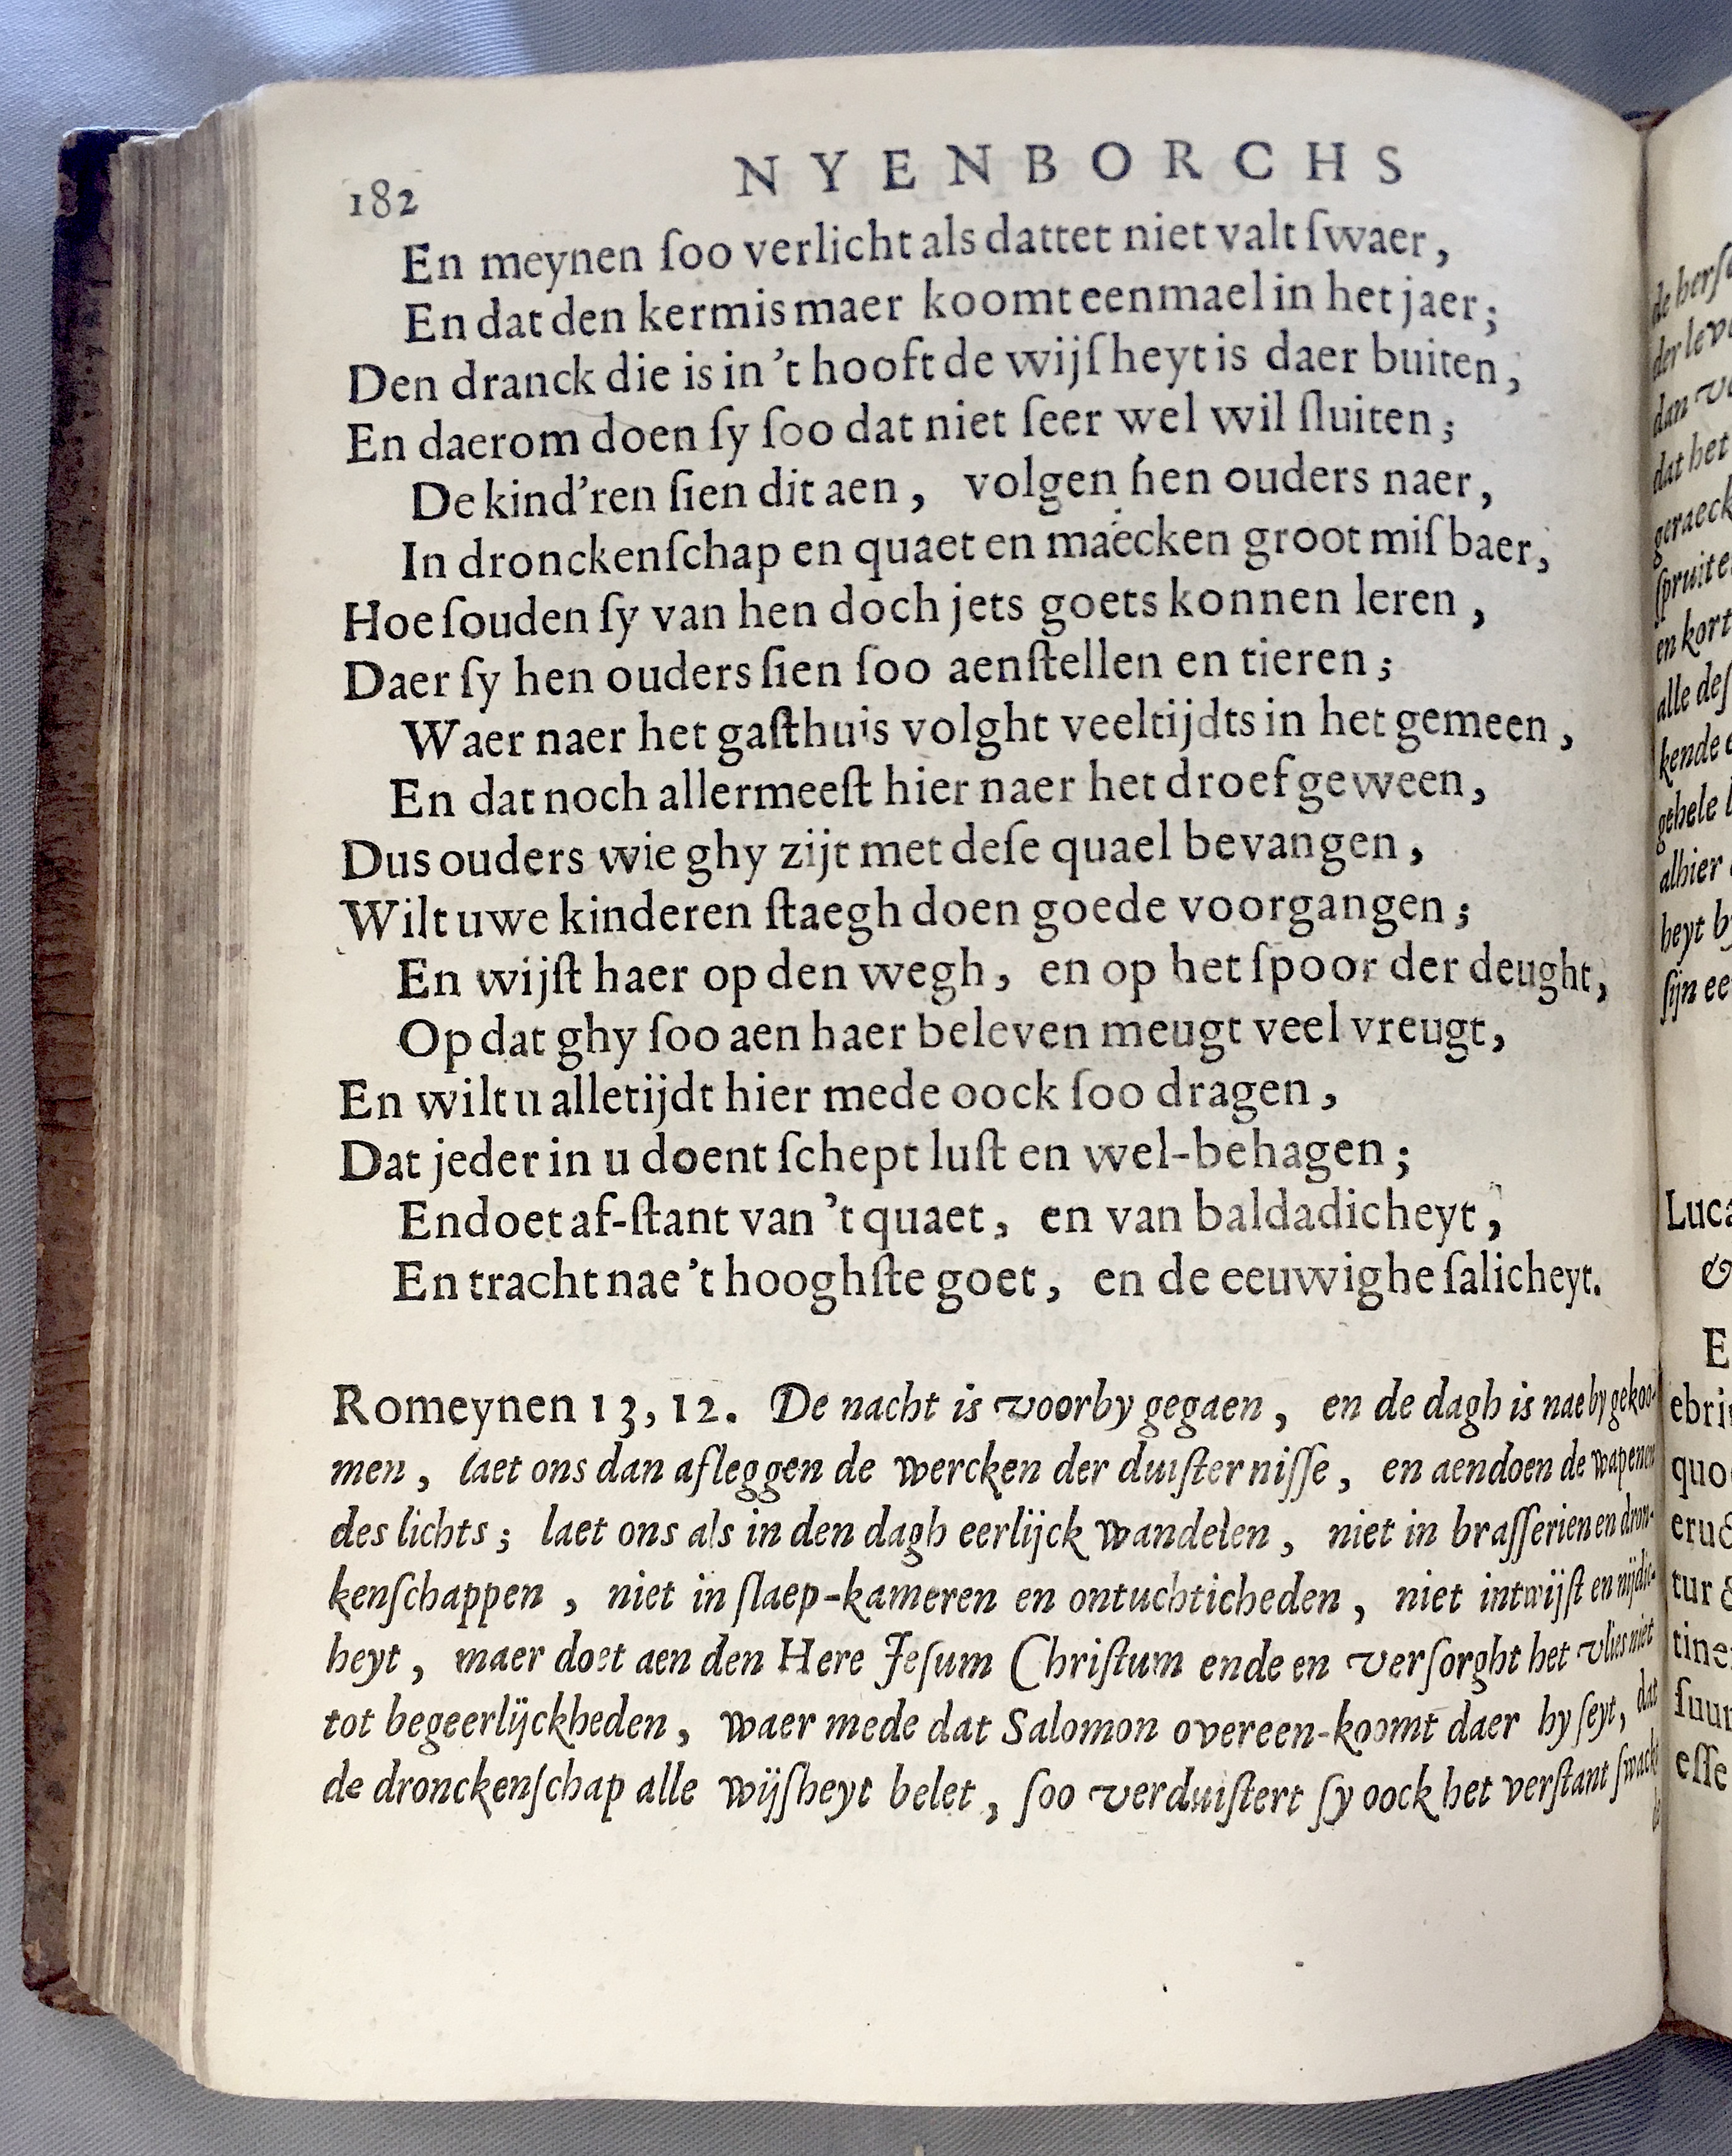 182 NYENBORCHS
En meynen ſoo verlicht als dattet niet valt ſwaer,
En dat den kermis maer koomt eenmael in het jaer;
Den dranck die is in 't hooft de wijſheyt is daer buiten,
En daerom doen ſy ſoo dat niet ſeer wel wil ſluiten;
De kind'ren ſien dit aen, volgen hen ouders naer,
In dronckenſchap en quaet en maecken groot miſbaer,
Hoe ſouden ſy van hen doch jets goets konnen leren,
Daer ſy hen ouders ſien ſoo aenſtellen en tieren;
Waer naer het gaſthuis volght veeltijdts in het gemeen,
En dat noch allermeeſt hier naer het droef geween,
Dus ouders wie ghy zijt met deſe quael bevangen,
Wilt uwe kinderen ſtaegh doen goede voorgangen;
En wijſt haer op den wegh, en op het ſpoor der deught,
Op dat ghy ſoo aen haer beleven meugt veel vreugt,
En wilt u alletijdt hier mede oock ſoo dragen,
Dat jeder in u doent ſchept luſt en wel-behagen;
En doet af-ſtant van 't quaet, en van baldadicheyt,
En tracht nae 't hooghſte goet, en de eeuwighe ſalicheyt.
Romeynen 13, 12. De nacht is voorby gegaen, en de dagh is nae by gekoo-
men, laet ons dan afleggen de wercken der duiſterniſſe, en aendoen de wapenen
des lichts; laet ons als in den dagh eerlijck wandelen, niet in braſſerien en dron-
kenſchappen, niet in ſlaep-kameren en ontuchticheden, niet in twijſt en nijdic-
heyt, maer doet aen den Here Jeſum Chriſtum ende en verſorght het vlies niet
tot begeerlijckheden, waer mede dat Salomon overeen-koomt daer hy ſeyt, dat
de dronckenſchap alle wijſheyt belet, ſoo verduiſtert ſy oock het verſtant ſwackt
de herſ
der leve
dan vo
dat het
geraeck
ſpruite
en kort
alle deſ
kende
gehele
alhier
heyt by
ſijn ee
Luca
&
E
ebri
quo
eru
tur
tine
ſuu
eſſe